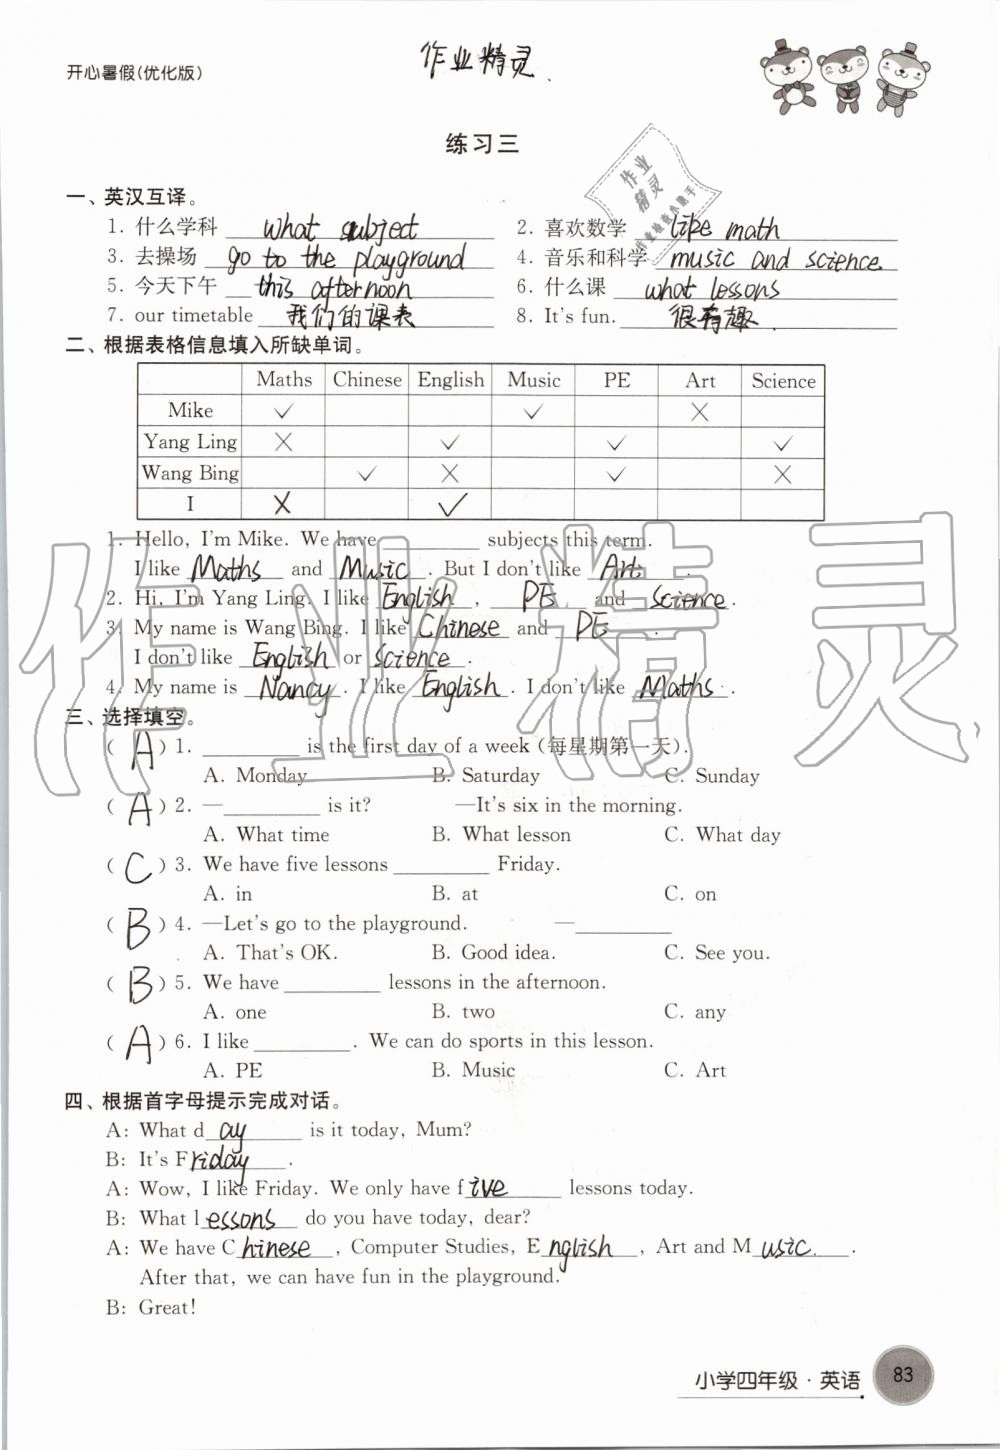 开心暑假(优化版)
作业精灵
练习三
作业
精灵
一、英汉互译。
1. 什么学科 what subject 2. 喜欢数学 like math
3. 去操场 go to the playground 4. 音乐和科学 music and science
5. 今天下午 this afternoon 6. 什么课 what lessons
7. our timetable 我们的课表 8. It's fun. 很有趣.
二、根据表格信息填入所缺单词。
Maths Chinese English Music PE Art Science
Mike ✓ ✓ ×
Yang Ling × ✓ ✓ ✓
Wang Bing ✓ × ✓ ×
I × ✓
1. Hello, I'm Mike. We have ________ subjects this term.
I like Maths and Music. But I don't like Art.
2. Hi, I'm Yang Ling. I like English, PE and science.
3. My name is Wang Bing. I like Chinese and PE.
I don't like English or science.
4. My name is Nancy. I like English. I don't like Maths.
三、选择填空。
( A ) 1. ________ is the first day of a week (每星期第一天).
A. Monday B. Saturday C. Sunday
( A ) 2. —________ is it? —It's six in the morning.
A. What time B. What lesson C. What day
( C ) 3. We have five lessons ________ Friday.
A. in B. at C. on
( B ) 4. —Let's go to the playground. —________
A. That's OK. B. Good idea. C. See you.
( B ) 5. We have ________ lessons in the afternoon.
A. one B. two C. any
( A ) 6. I like ________. We can do sports in this lesson.
A. PE B. Music C. Art
四、根据首字母提示完成对话。
A: What day is it today, Mum?
B: It's Friday.
A: Wow, I like Friday. We only have five lessons today.
B: What lessons do you have today, dear?
A: We have Chinese, Computer Studies, English, Art and Music.
After that, we can have fun in the playground.
B: Great!
作业精灵
小学四年级·英语 83